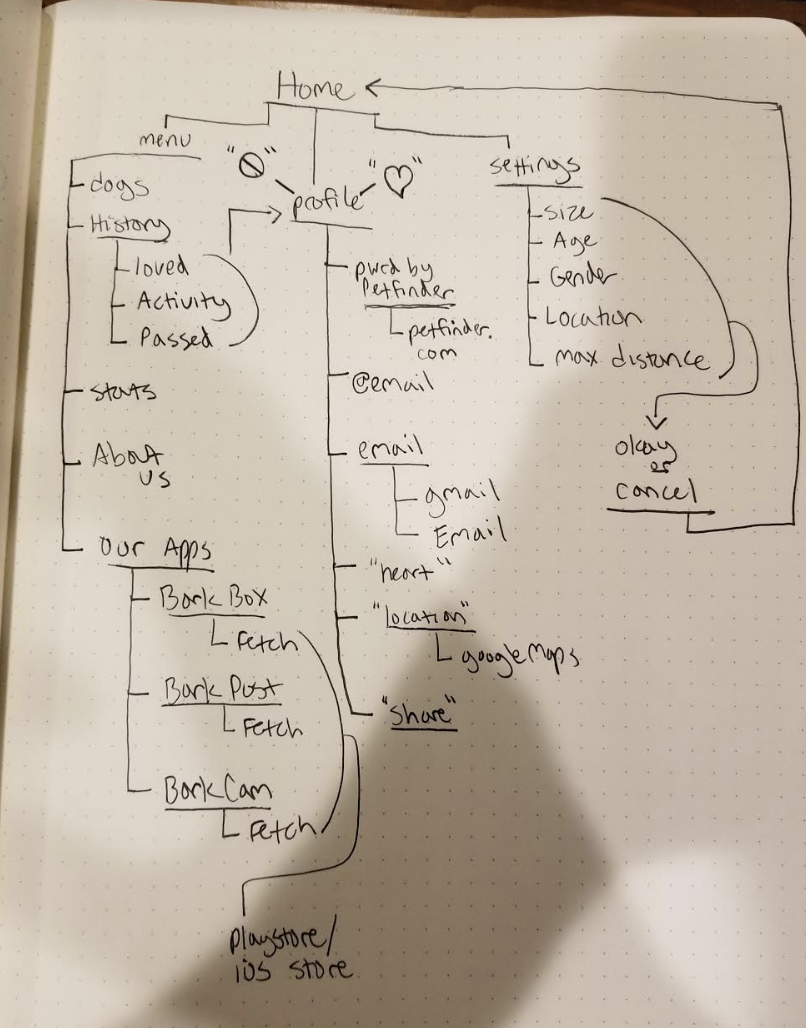 Home
menu
dogs
History
loved
Activity
Passed
stats
About
us
Our Apps
BarkBox
Fetch
Bark Post
Fetch
BarkCam
Fetch
playstore/
ios store
" "
" "
profile
pwrd by
Petfinder
petfinder.
com
@email
email
gmail
Email
"heart"
"location"
google Maps
"Share"
settings
Size
Age
Gender
Location
max distance
okay
or
cancel